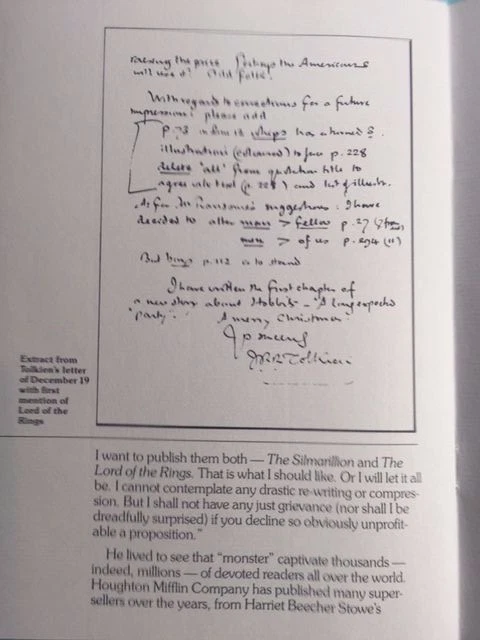 raising the price. Perhaps the Americans
will use it? Odd folk.
With regard to corrections for a future
impression: please add
p. 73 in line 18 whips has a turned s.
illustration (coloured) to face p. 228
delete 'all' from quotation title to
agree with text (p. 228) and list of illustr.
As for Mr Ransome's suggestions: I have
decided to alter man > fellow p. 27
men > of us p. 294 (11)
But boys p. 112 is to stand
I have written the first chapter of
a new story about Hobbits – 'A long expected
party'.
A merry Christmas
J.R.R. Tolkien
Extract from
Tolkien's letter
of December 19
with first
mention of
Lord of the
Rings
I want to publish them both — The Silmarillion and The
Lord of the Rings. That is what I should like. Or I will let it all
be. I cannot contemplate any drastic re-writing or compres-
sion. But I shall not have any just grievance (nor shall I be
dreadfully surprised) if you decline so obviously unprofit-
able a proposition."
He lived to see that "monster" captivate thousands —
indeed, millions — of devoted readers all over the world.
Houghton Mifflin Company has published many super-
sellers over the years, from Harriet Beecher Stowe's